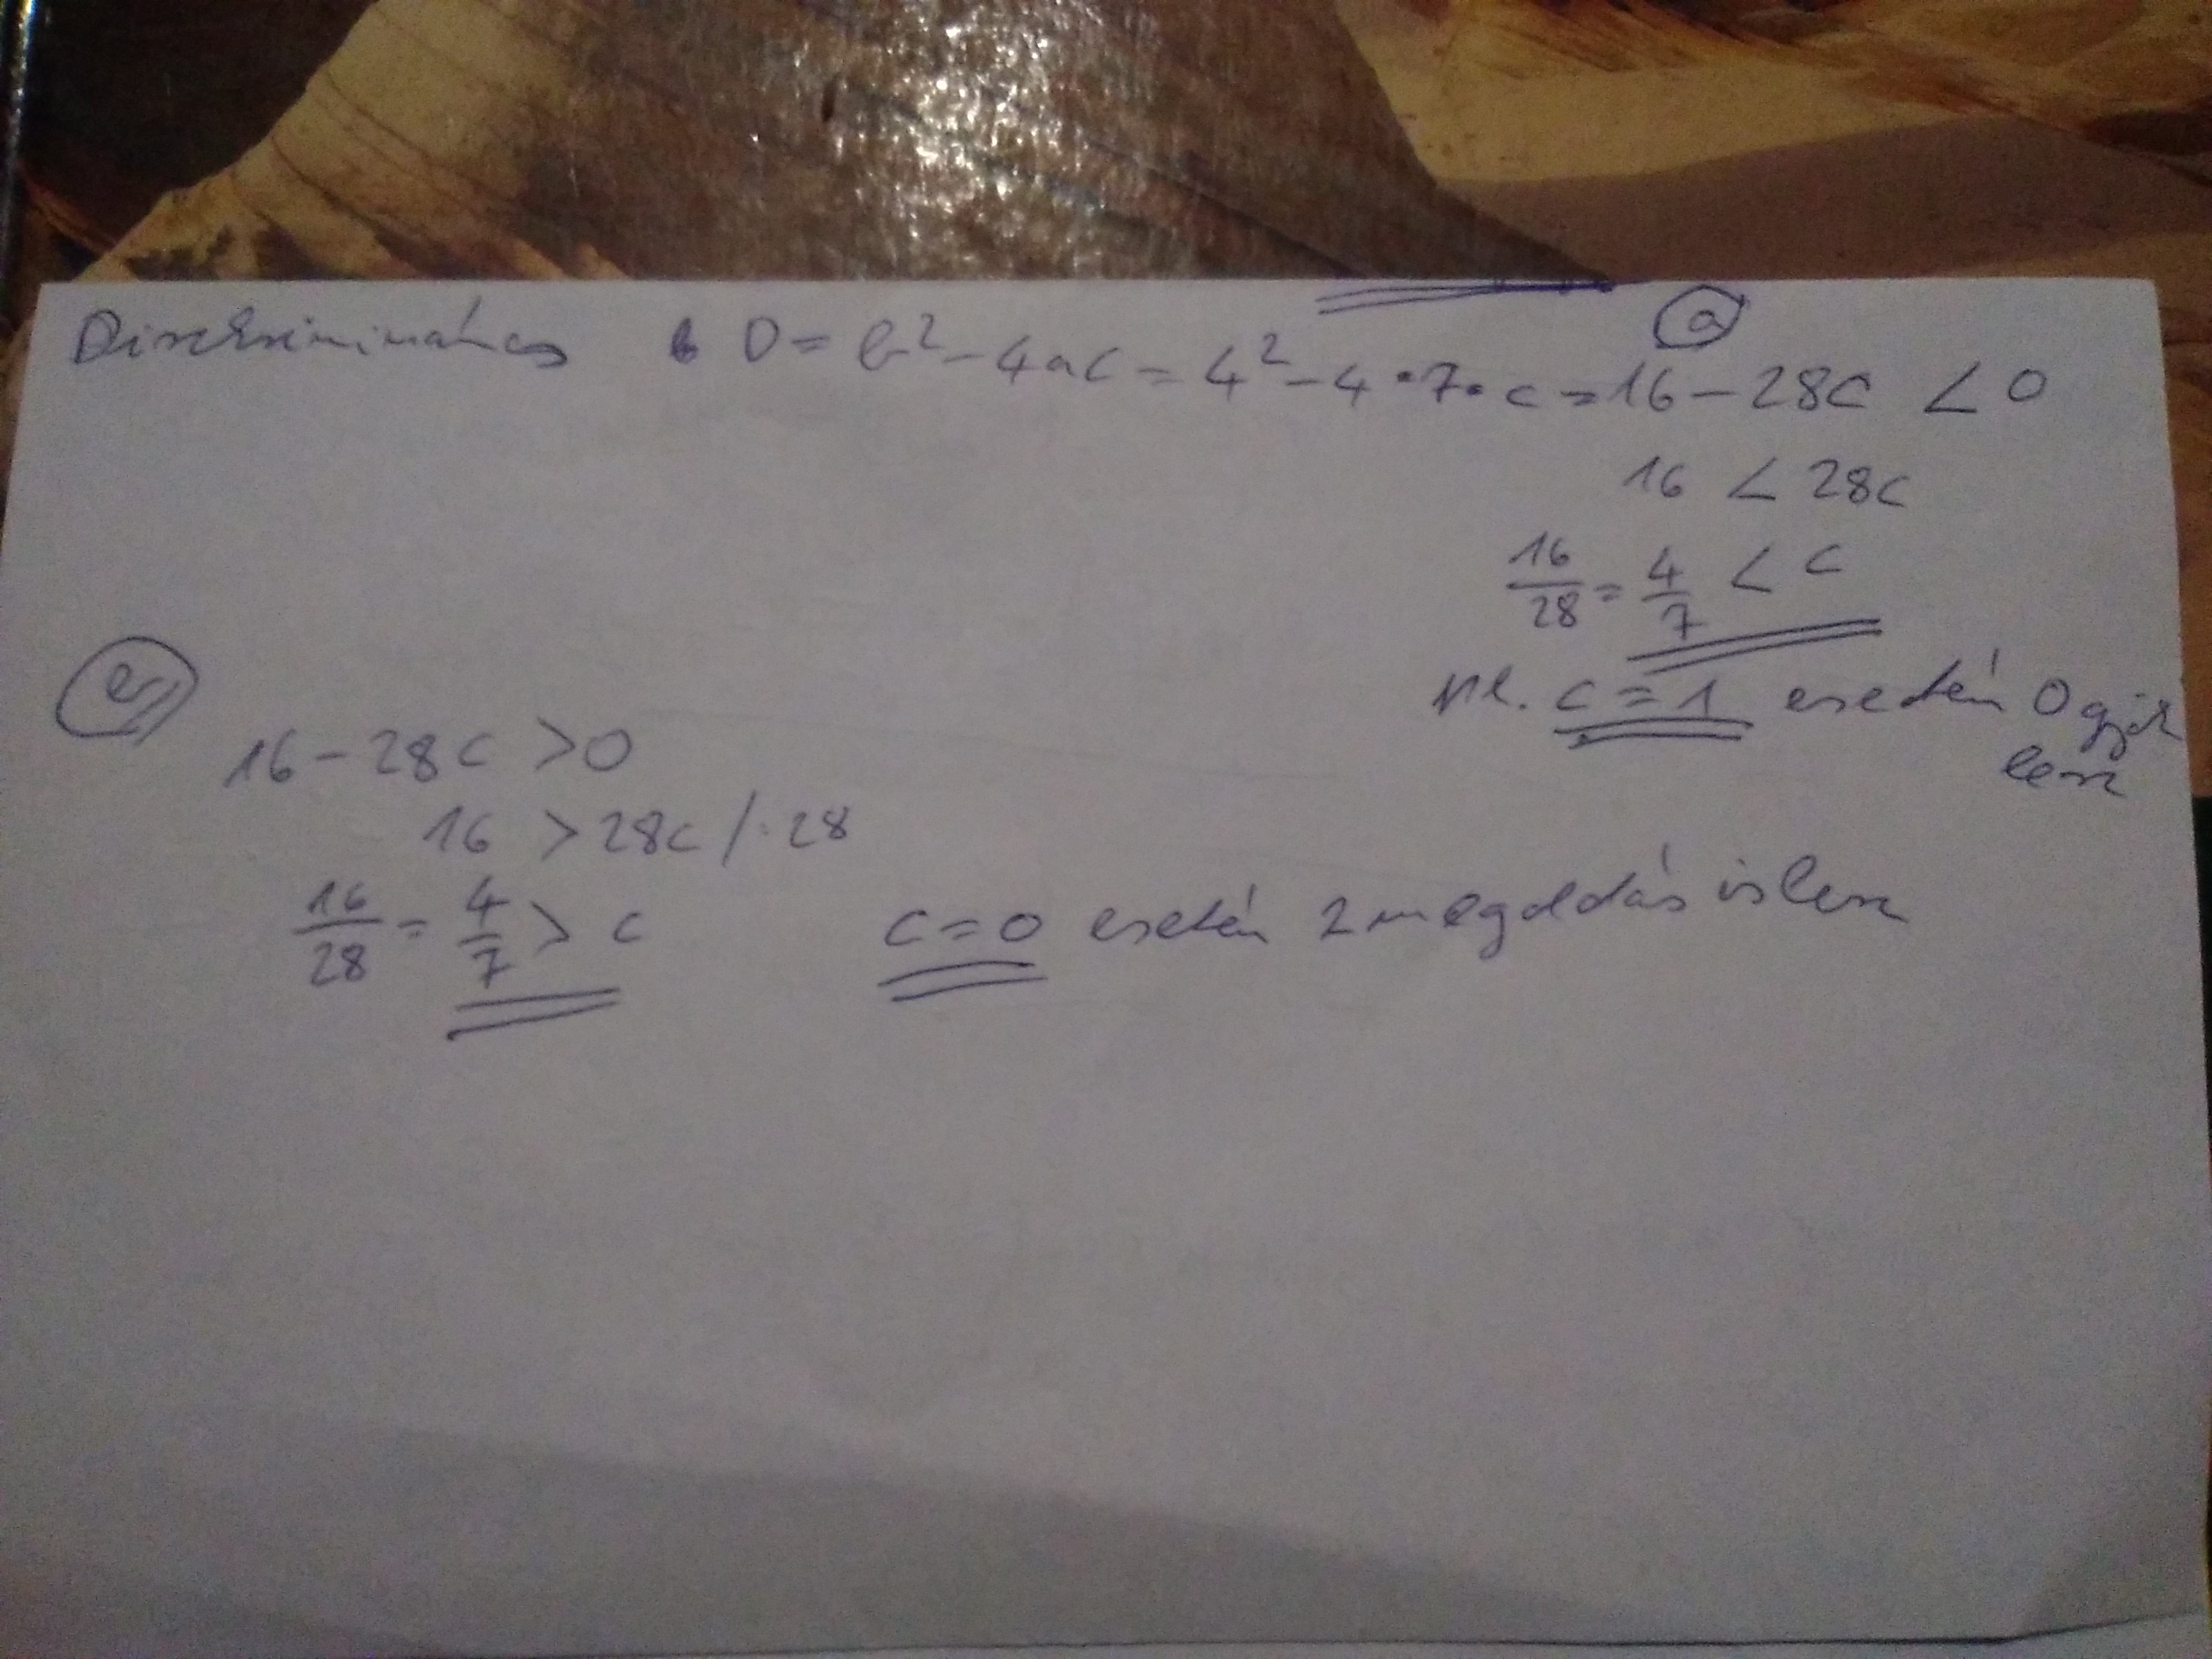 Diszkrimináns D = b² - 4ac = 4² - 4 · 7 · c = 16 - 28c < 0
a
16 < 28c
16/28 = 4/7 < c
pl. c = 1 esetén 0 gyök
lesz
b
16 - 28c > 0
16 > 28c /: 28
16/28 = 4/7 > c
c = 0 esetén 2 megoldás is lesz